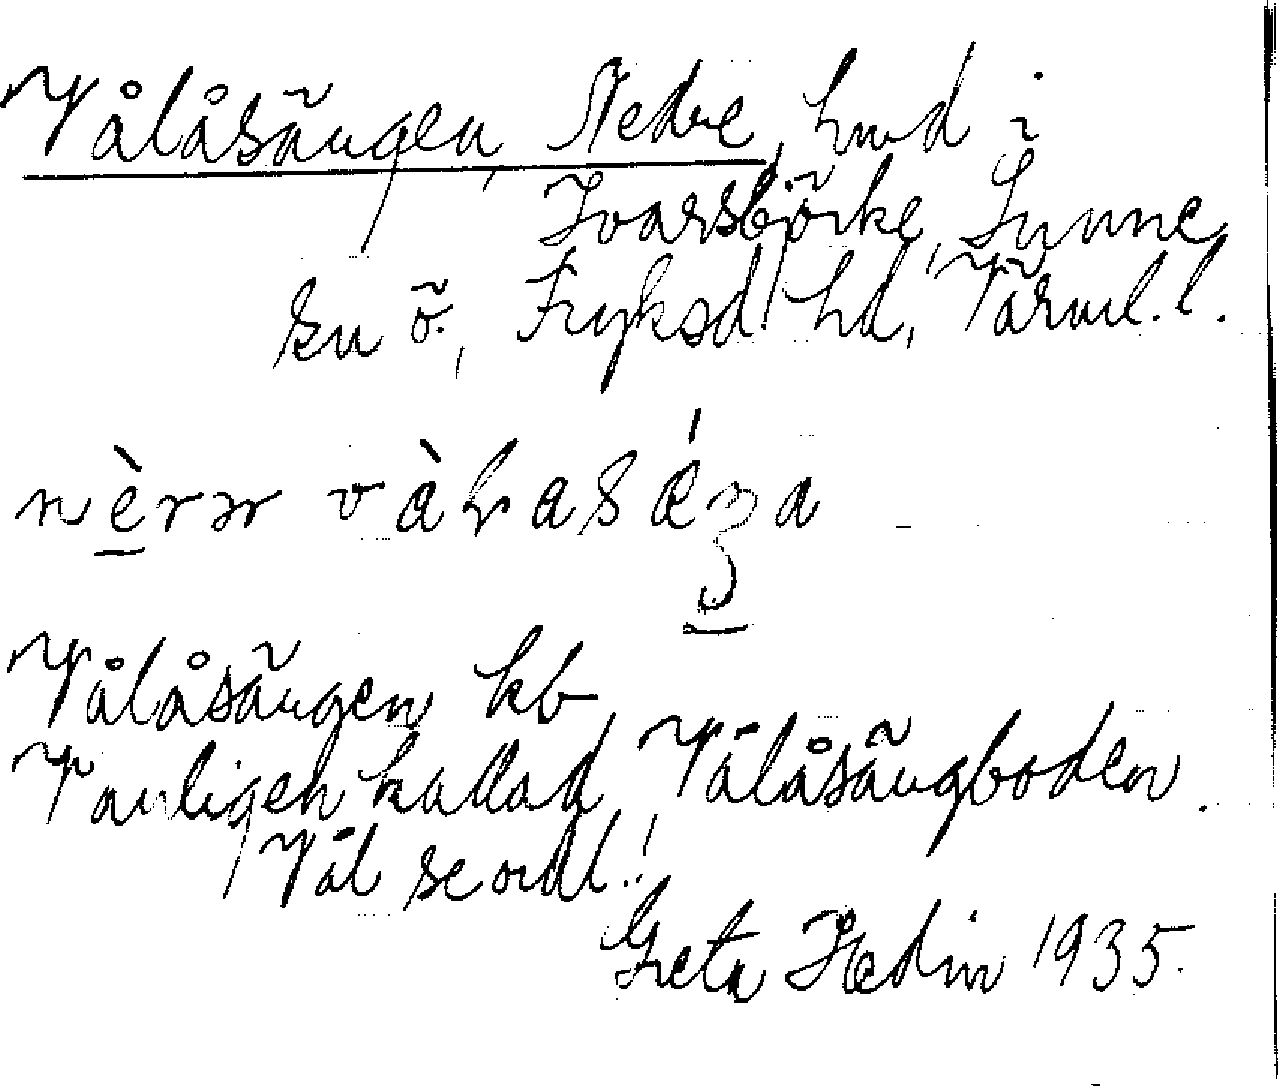 Vålåsängen, Nedre, hmd i
Ivarsbjörke, Sunne
sn ö., Fryksd. hd, Värml. l.
nèrər vàɽasǽŋa
Vålåsängen kb
Vanligen kallad Vålåsängboden.
Vål se ordl.!
Greta Hedin 1935.